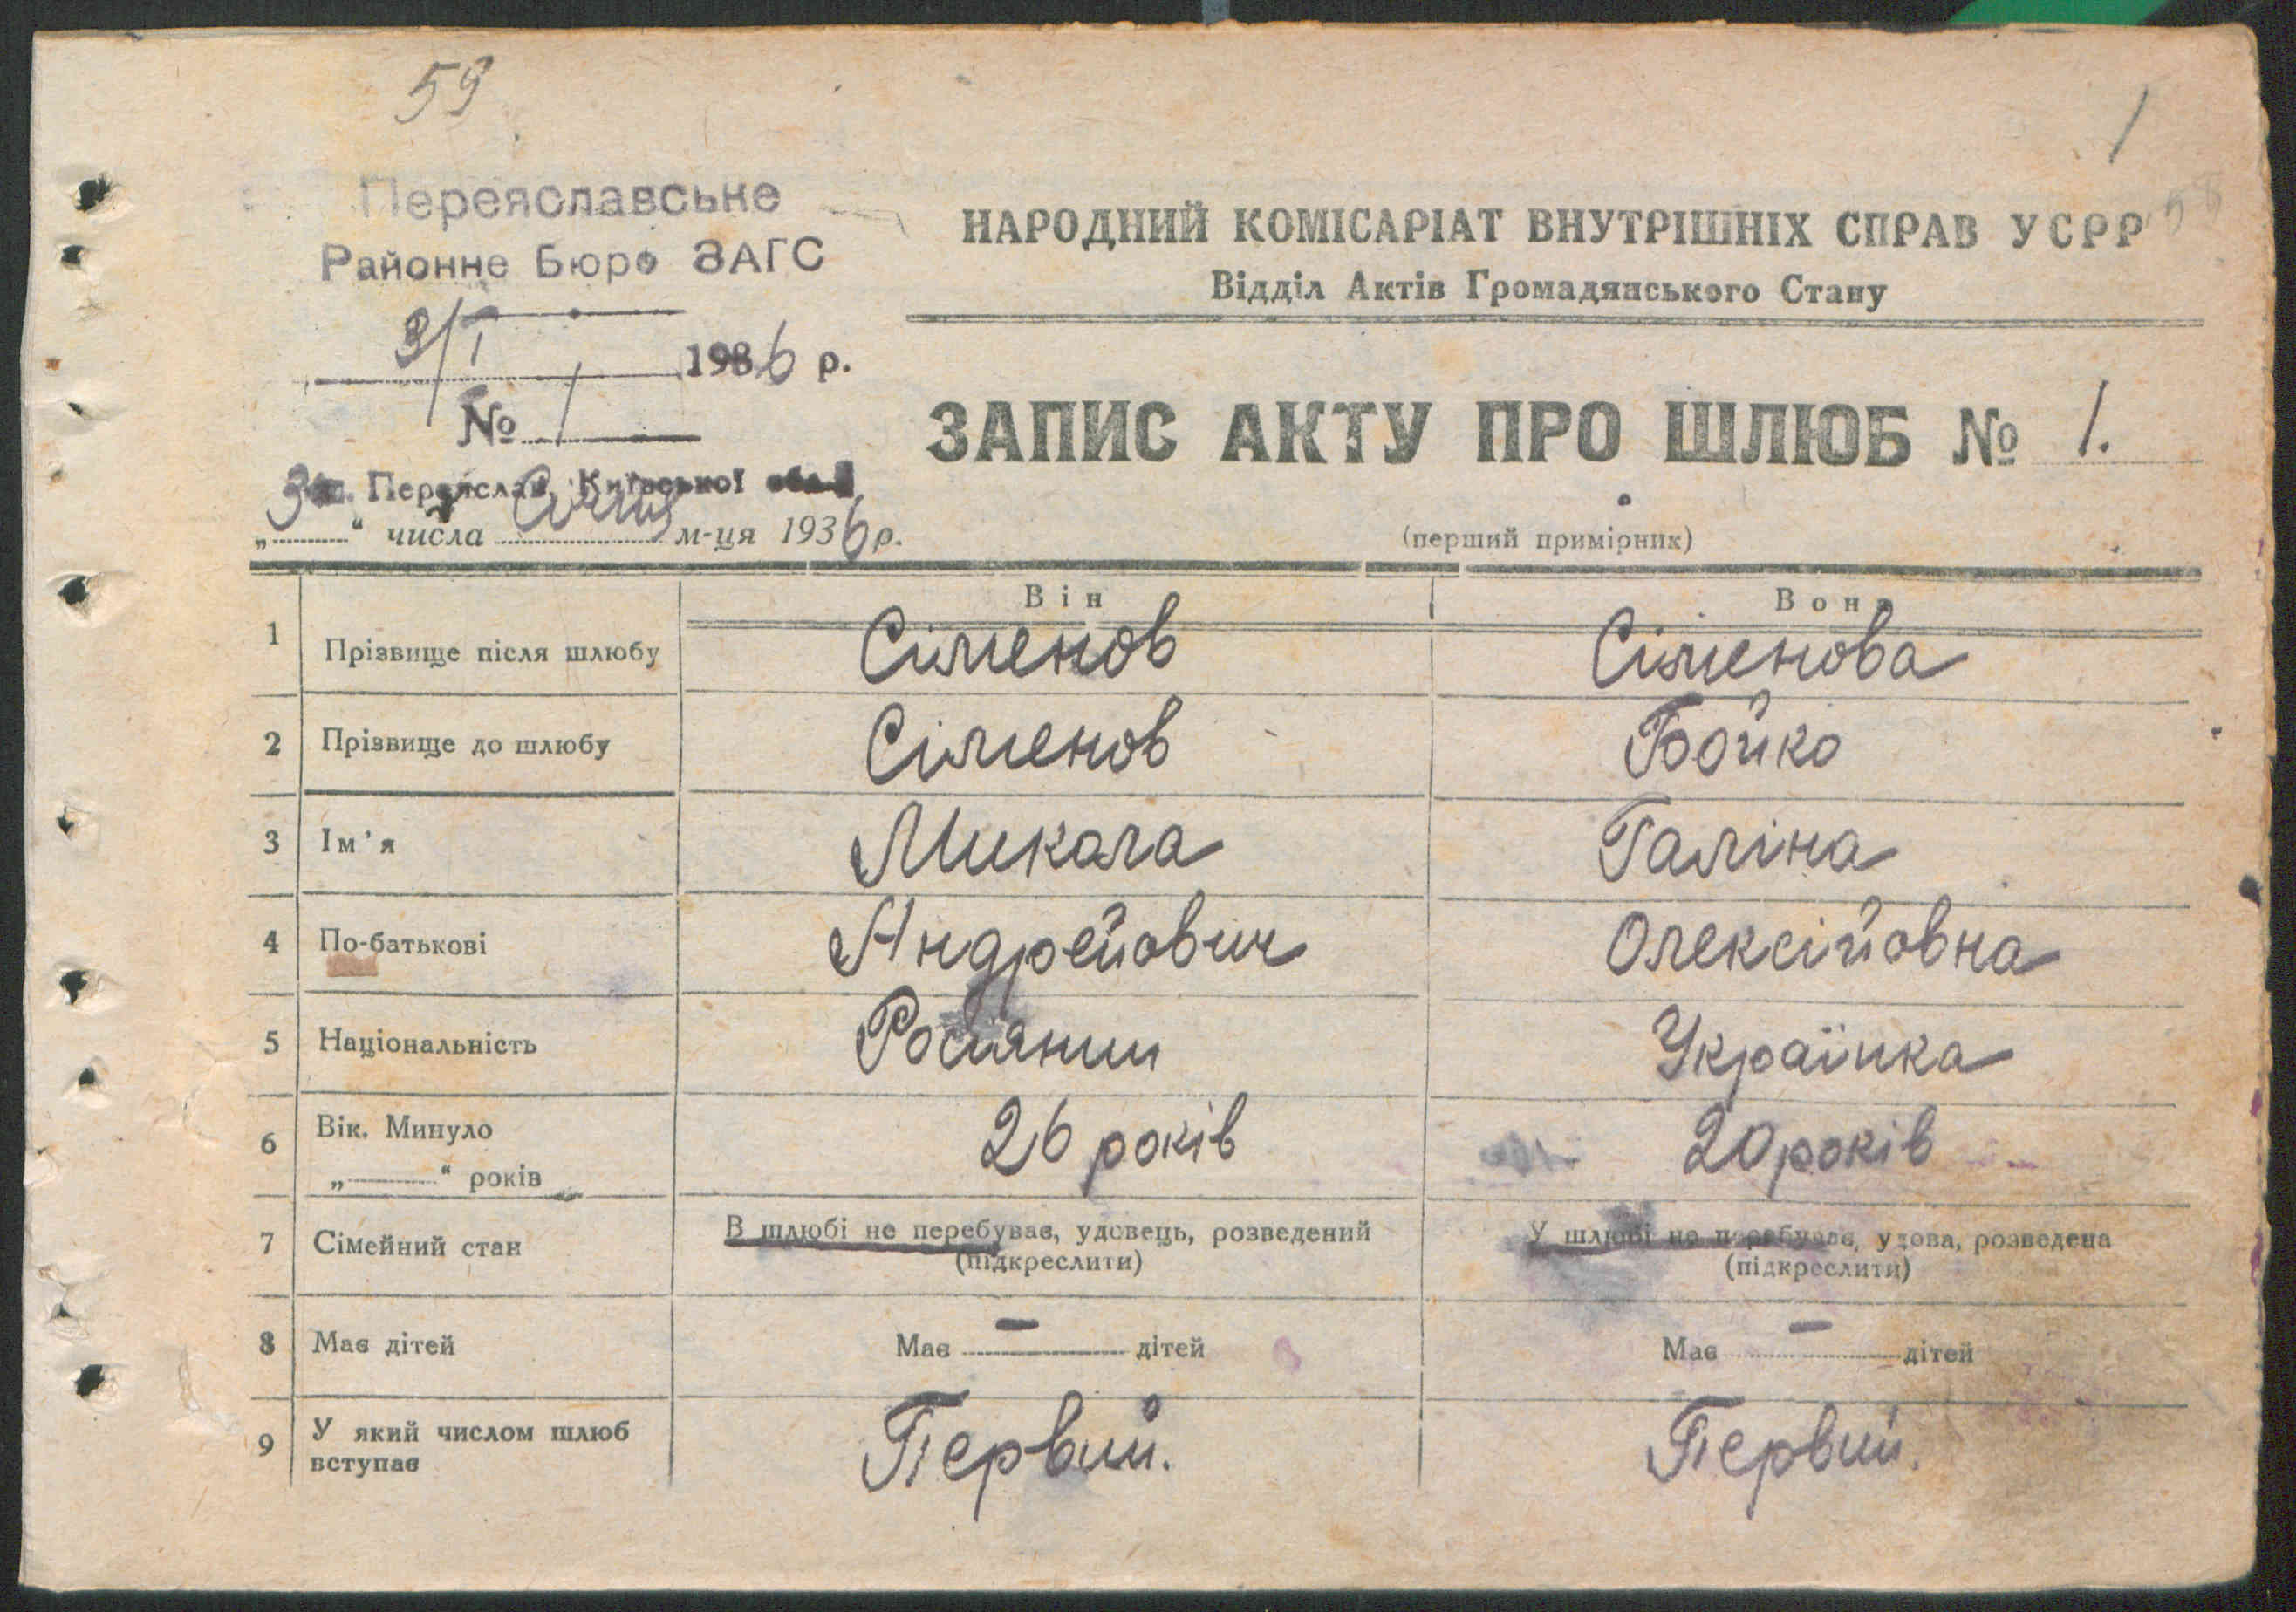 59
1
Переяславське
Районне Бюро ЗАГС
3/I 1936 р.
№ 1
м. Переяслав, Київської обл.
„3“ числа Січня м-ця 1936 р.
НАРОДНИЙ КОМІСАРІАТ ВНУТРІШНІХ СПРАВ УСРР
Відділ Актів Громадянського Стану
ЗАПИС АКТУ ПРО ШЛЮБ № 1.
(перший примірник)
Він Вона
1 Прізвище після шлюбу Сіменов Сіменова
2 Прізвище до шлюбу Сіменов Бойко
3 Ім'я Микола Галіна
4 По-батькові Андрейович Олексійовна
5 Національність Росіянин Українка
6 Вік. Минуло 26 років 20 років
„——“ років
7 Сімейний стан В шлюбі не перебував, удовець, розведений У шлюбі не перебувала, удова, розведена
(підкреслити) (підкреслити)
8 Має дітей Має — дітей Має — дітей
9 У який числом шлюб Первий. Первий.
вступає